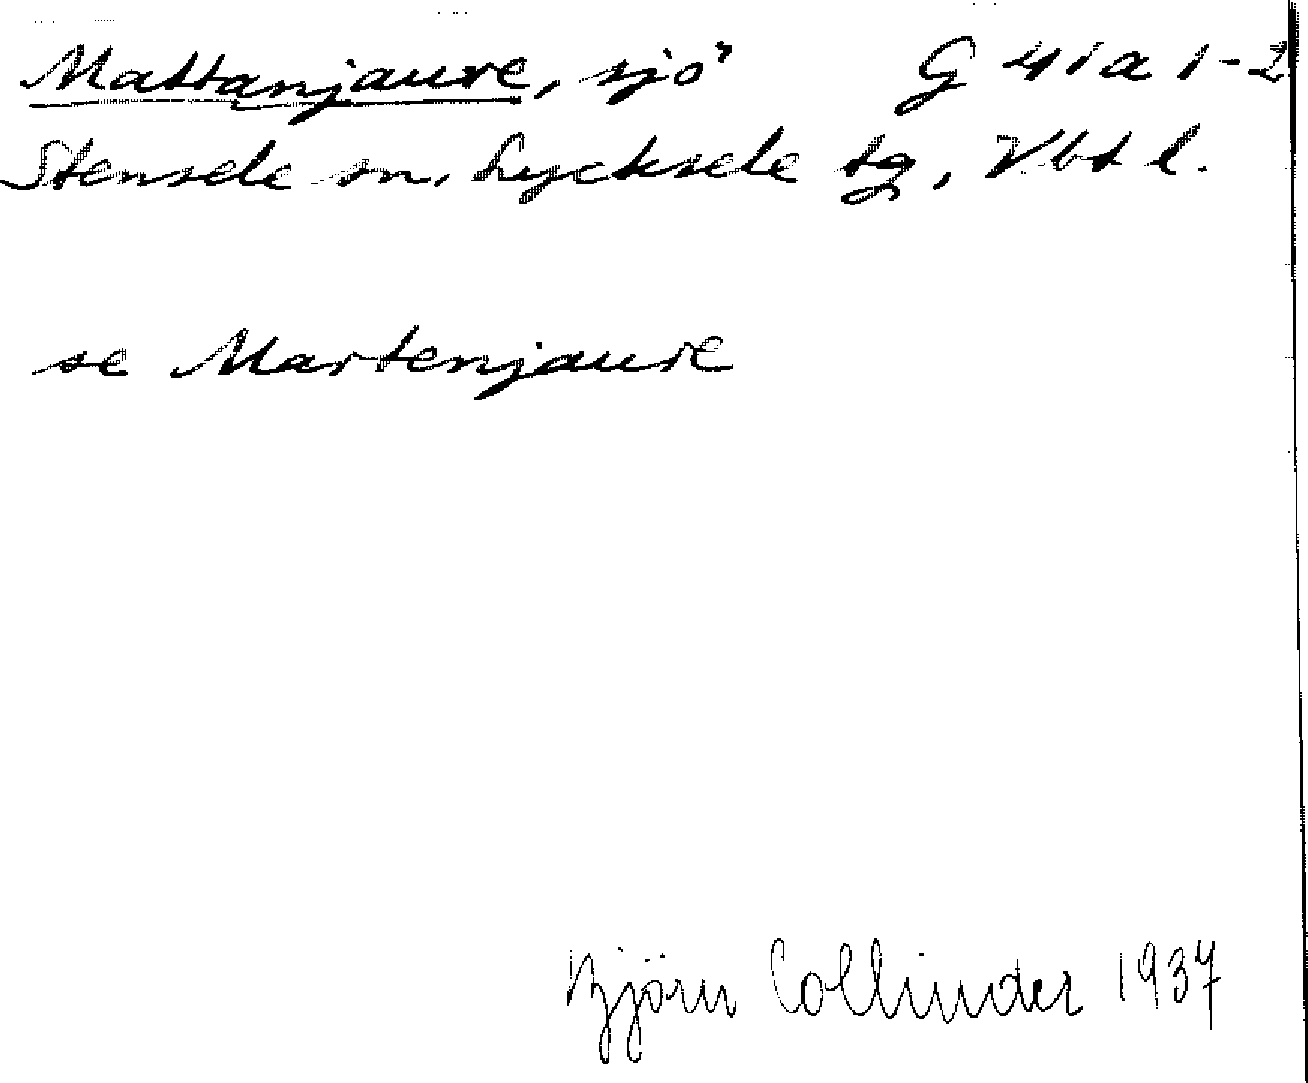 Mattanjaure, sjö G 41 a 1-2
Stensele sn, Lycksele tg, Vbt l.
se Martenjaure
Björn Collinder 1937